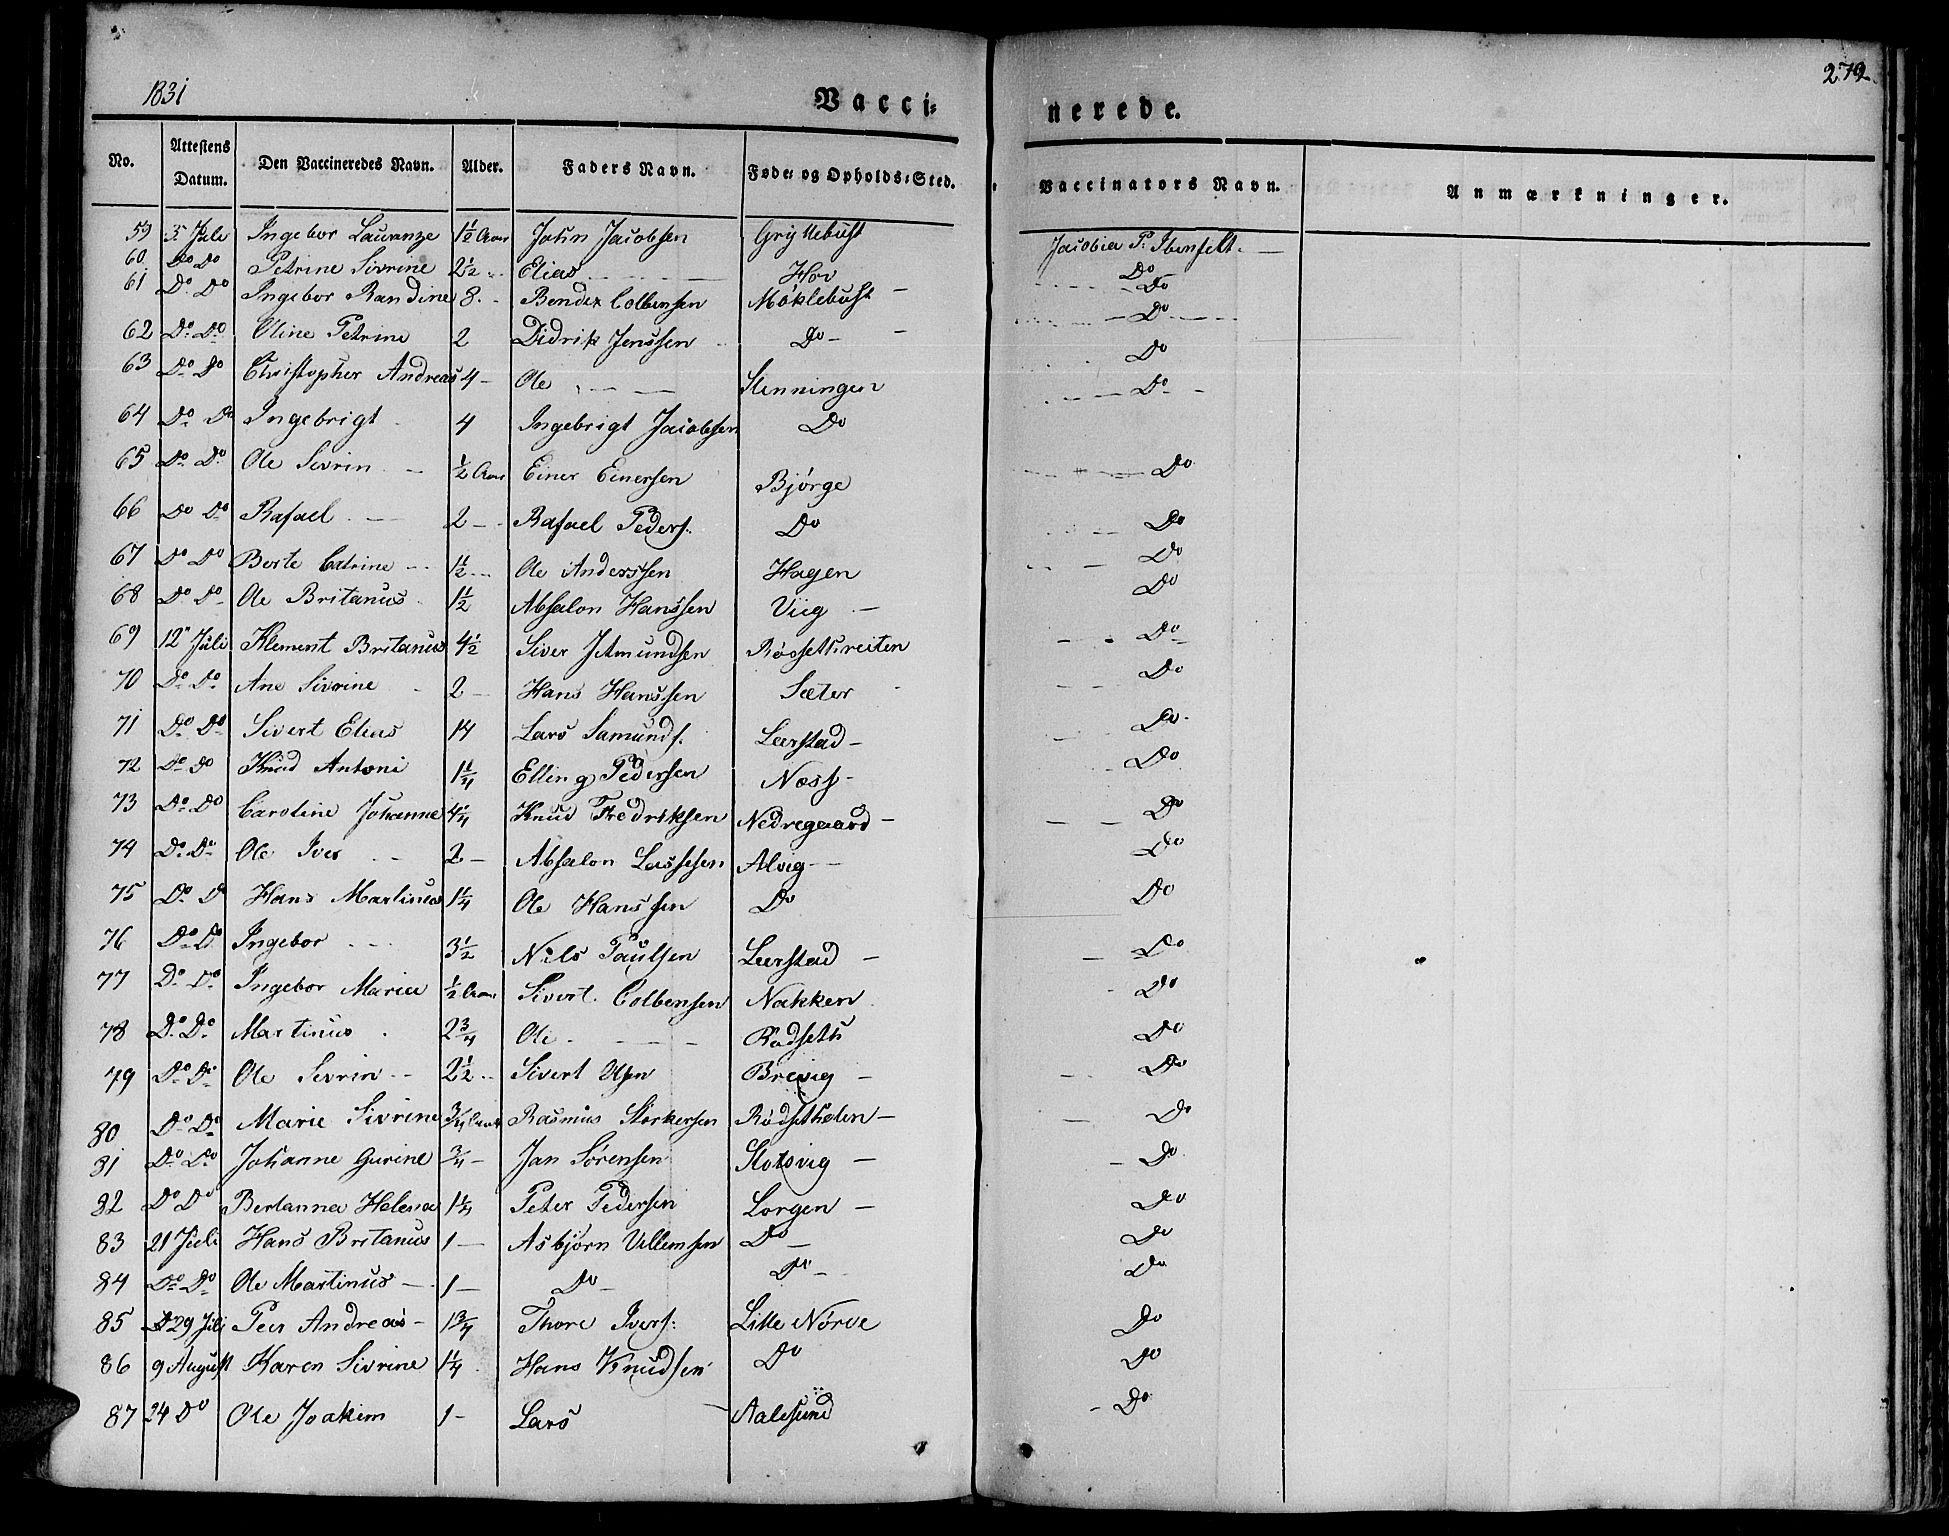 1831
Vacci-
nerede.
272
No. Attestens Datum. Den Vaccineredes Navn. Alder. Faders Navn. Føde- og Opholds-Sted. Vaccinators Navn. Anmærkninger.
59 3 Juli Ingebor Lauranze 1½ Aar John Jacobsen Gryttebust Jacobia P. Ibenfelt.
60 Do Do Petrine Sivrine 2½ Elias Hov Do
61 Do Do Ingebor Randine 8 Bendex Colbensen Møklebust Do
62 Do Do Oline Petrine 2 Didrik Jenssen Do Do
63 Do Do Christopher Andreas 4 Ole Slenningen Do
64 Do Do Ingebrigt 4 Ingebrigt Jacobsen Do Do
65 Do Do Ole Sivrin ½ Aar Einer Einersen Bjørge Do
66 Do Do Rafael 2 Rafael Peders: Do Do
67 Do Do Berte Catrine 1½ Ole Anderssen Hagen Do
68 Do Do Ole Britanus 1½ Absalon Hanssen Viig Do
69 12 Juli Klement Britanus 4½ Siver Amundsen Røssetsreiten Do
70 Do Do Ane Sivrine 2 Hans Hanssen Sæter Do
71 Do Do Sivert Elias 14 Lars Samunds. Leerstad Do
72 Do Do Knud Antoni 1¼ Elling Pedersen Næss Do
73 Do Do Caroline Johanne 4¼ Knud Fredriksen Nedregaard Do
74 Do Do Ole Iver 2 Absalon Lassesen Alvig Do
75 Do Do Hans Martinus 1¼ Ole Hanssen Do Do
76 Do Do Ingebor 3½ Nils Paulsen Leerstad Do
77 Do Do Ingebor Maria ½ Aar Sivert Colbensen Nakken Do
78 Do Do Martinus 2¾ Ole Rødseth Do
79 Do Do Ole Sivrin 2½ Sivert Olsen Brevig Do
80 Do Do Marie Sivrine ¾ Aar Rasmus Storkersen Rødsetholen Do
81 Do Do Johanne Gurine ¾ Jan Sørensen Slotsvig Do
82 Do Do Bertanna Helena 1¼ Peter Pedersen Lorgen Do
83 21 Juli Hans Britanus 1 Asbjørn Villemsen Do Do
84 Do Do Ole Martinus 1 Do Do Do
85 29 Juli Peer Andreas 1¾ Thore Ivers: Lille Nørve Do
86 9 August Karen Sivrine 1¼ Hans Knudsen Do Do
87 24 Do Ole Joakim 1 Lars Aalesund Do